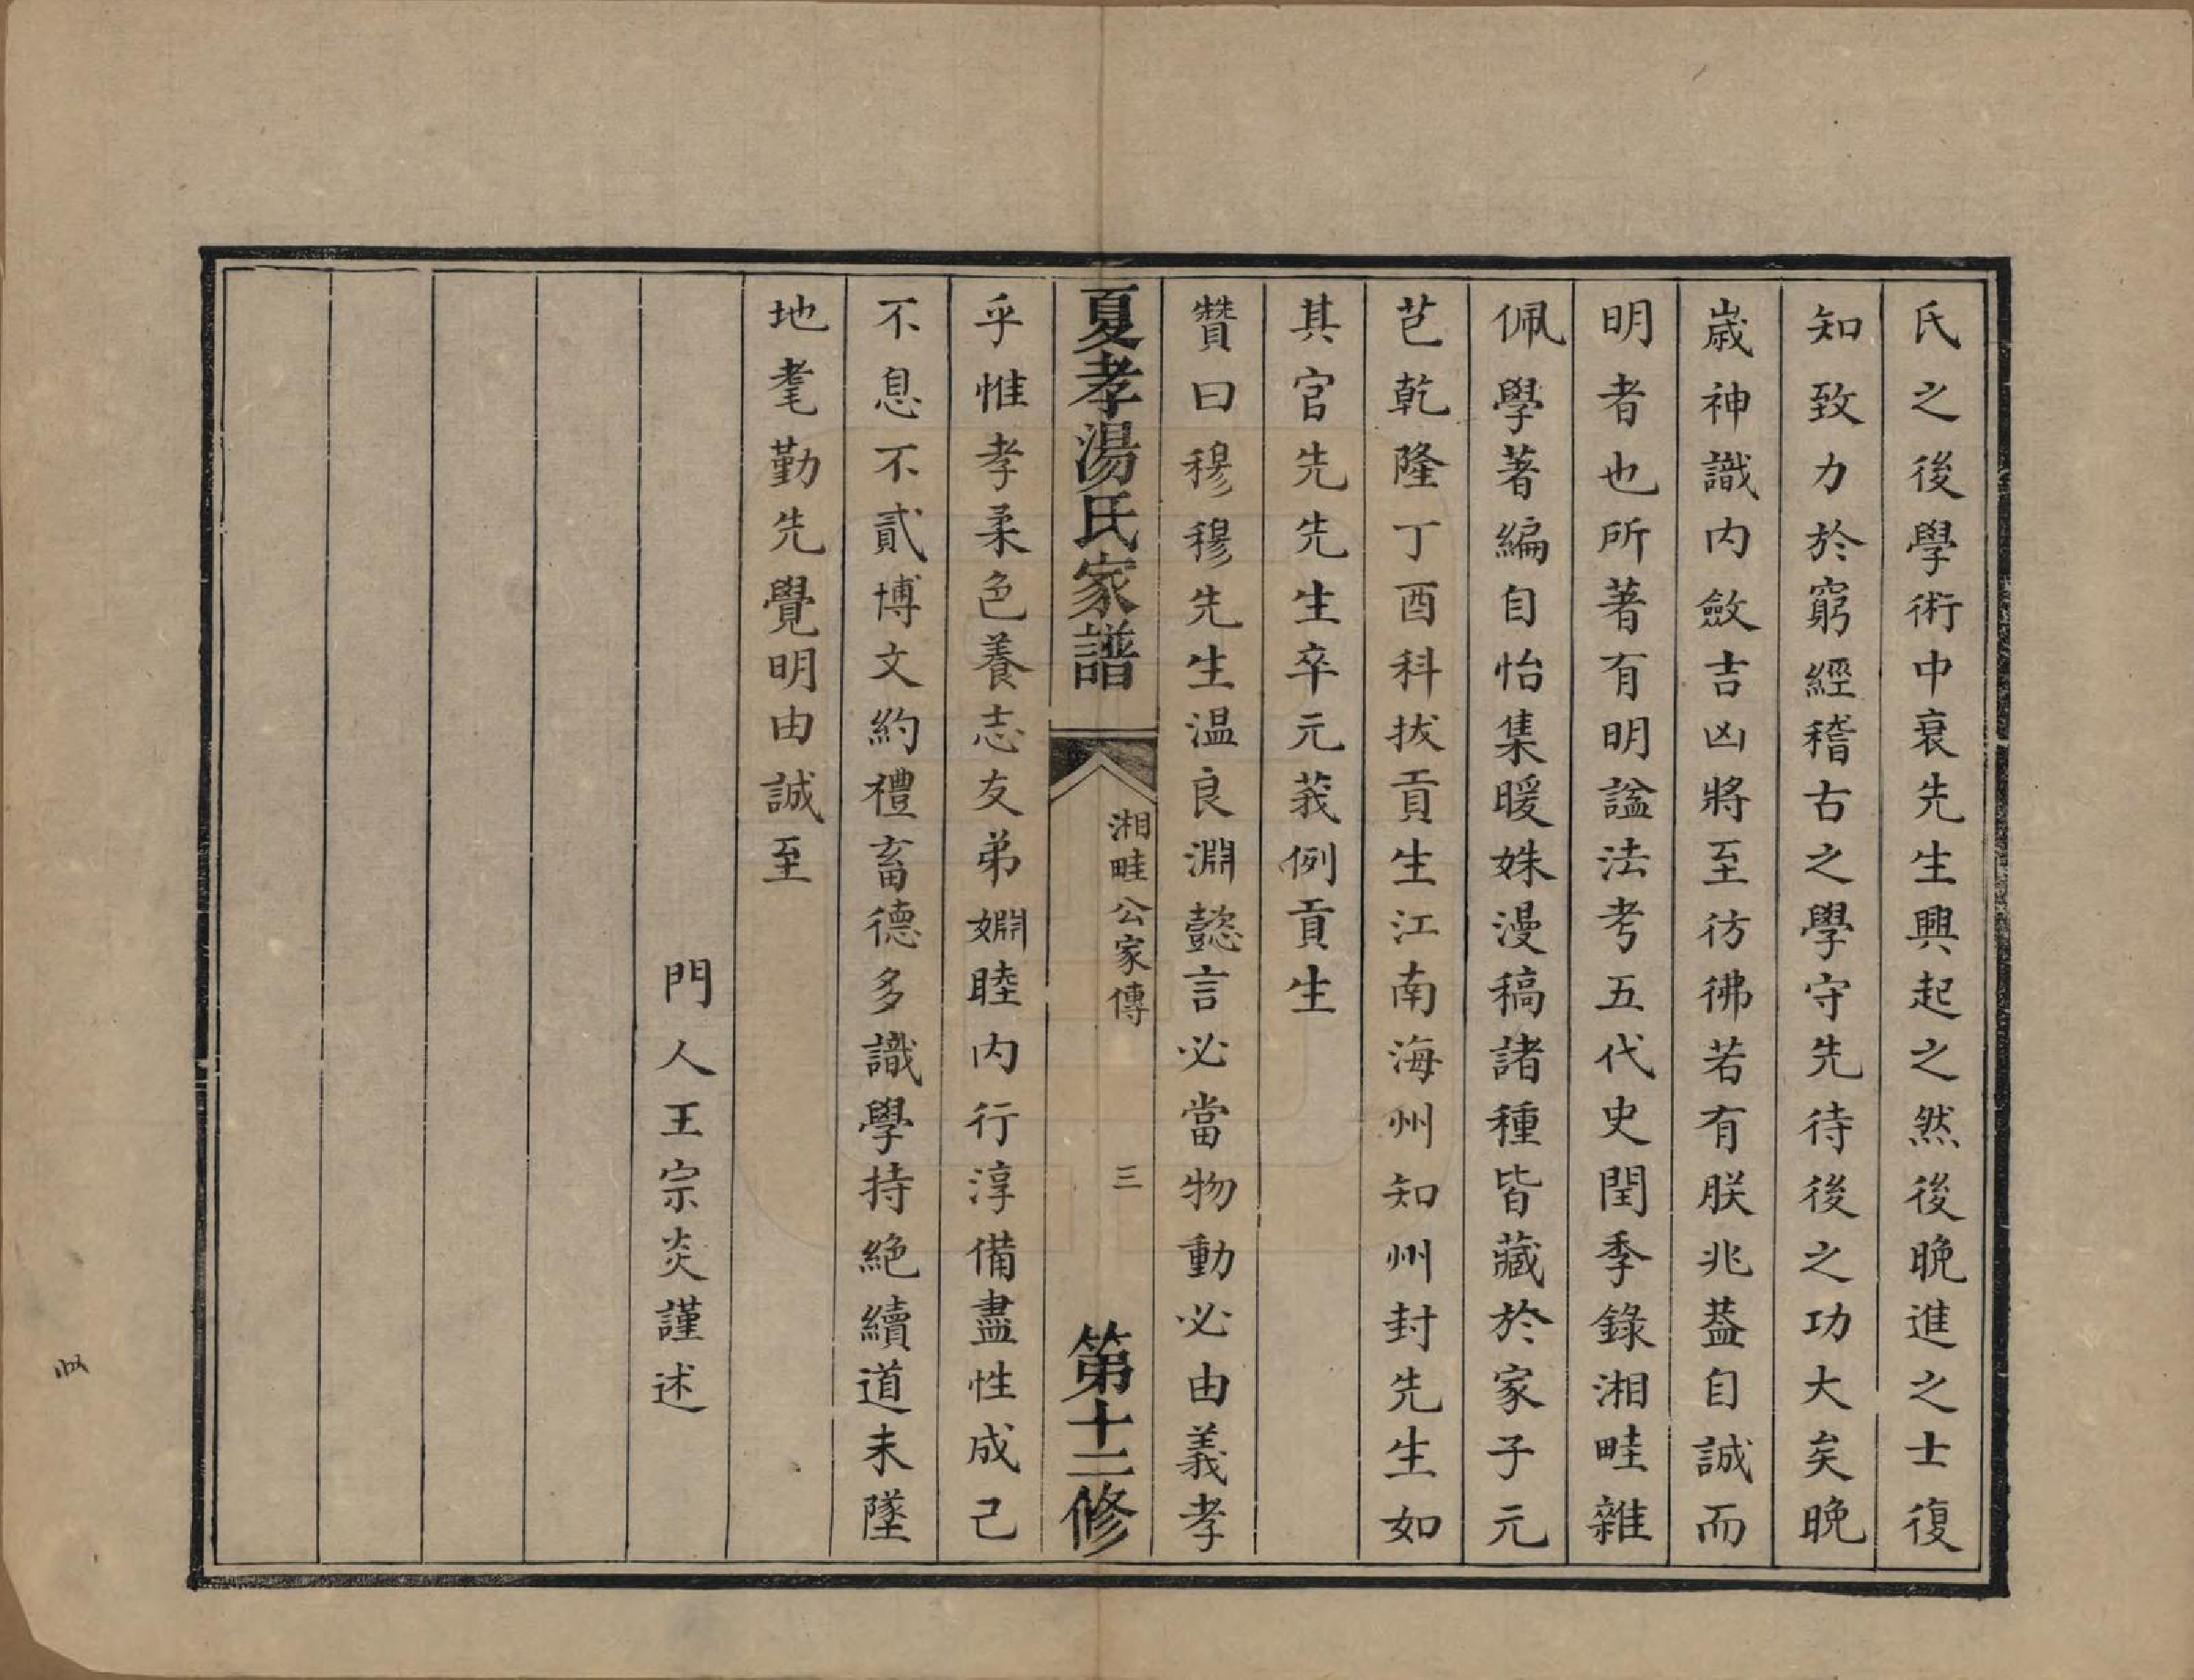 氏之後學術中衰先生興起之然後晚進之士復
知致力於窮經稽古之學守先待後之功大矣晚
歲神識内斂吉凶將至彷彿若有朕兆葢自誠而
明者也所著有明謚法考五代史閏季錄湘畦雜
佩學著編自怡集暖姝漫稿諸種皆藏於家子元
芑乾隆丁酉科拔貢生江南海州知州封先生如
其官先先生卒元莪例貢生
贊曰穆穆先生温良淵懿言必當物動必由義孝
夏孝湯氏家譜
湘畦公家傳
三
第十二修
乎惟孝柔色養志友弟婣睦内行淳備盡性成己
不息不貳博文約禮畜德多識學持絶續道未墜
地耄勤先覺明由誠至
門人王宗炎謹述